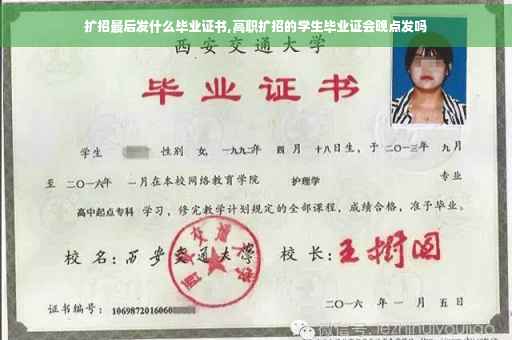 扩招最后发什么毕业证书,高职扩招的学生毕业证会晚点发吗
西安交通大学
毕业证书
学生 性别 女,一九九二年 四月 十八日生,于二〇一三年 九月
至 二〇一六年 一月在本校网络教育学院 护理学 专业
高中起点专科 学习,修完教学计划规定的全部课程,成绩合格,准予毕业。
校 名:西安交通大学 校 长:王树国
西安交通大学
证书编号:1069872016060
二〇一六 年 一 月 五 日
微信号: jiezhinuiyoujiao